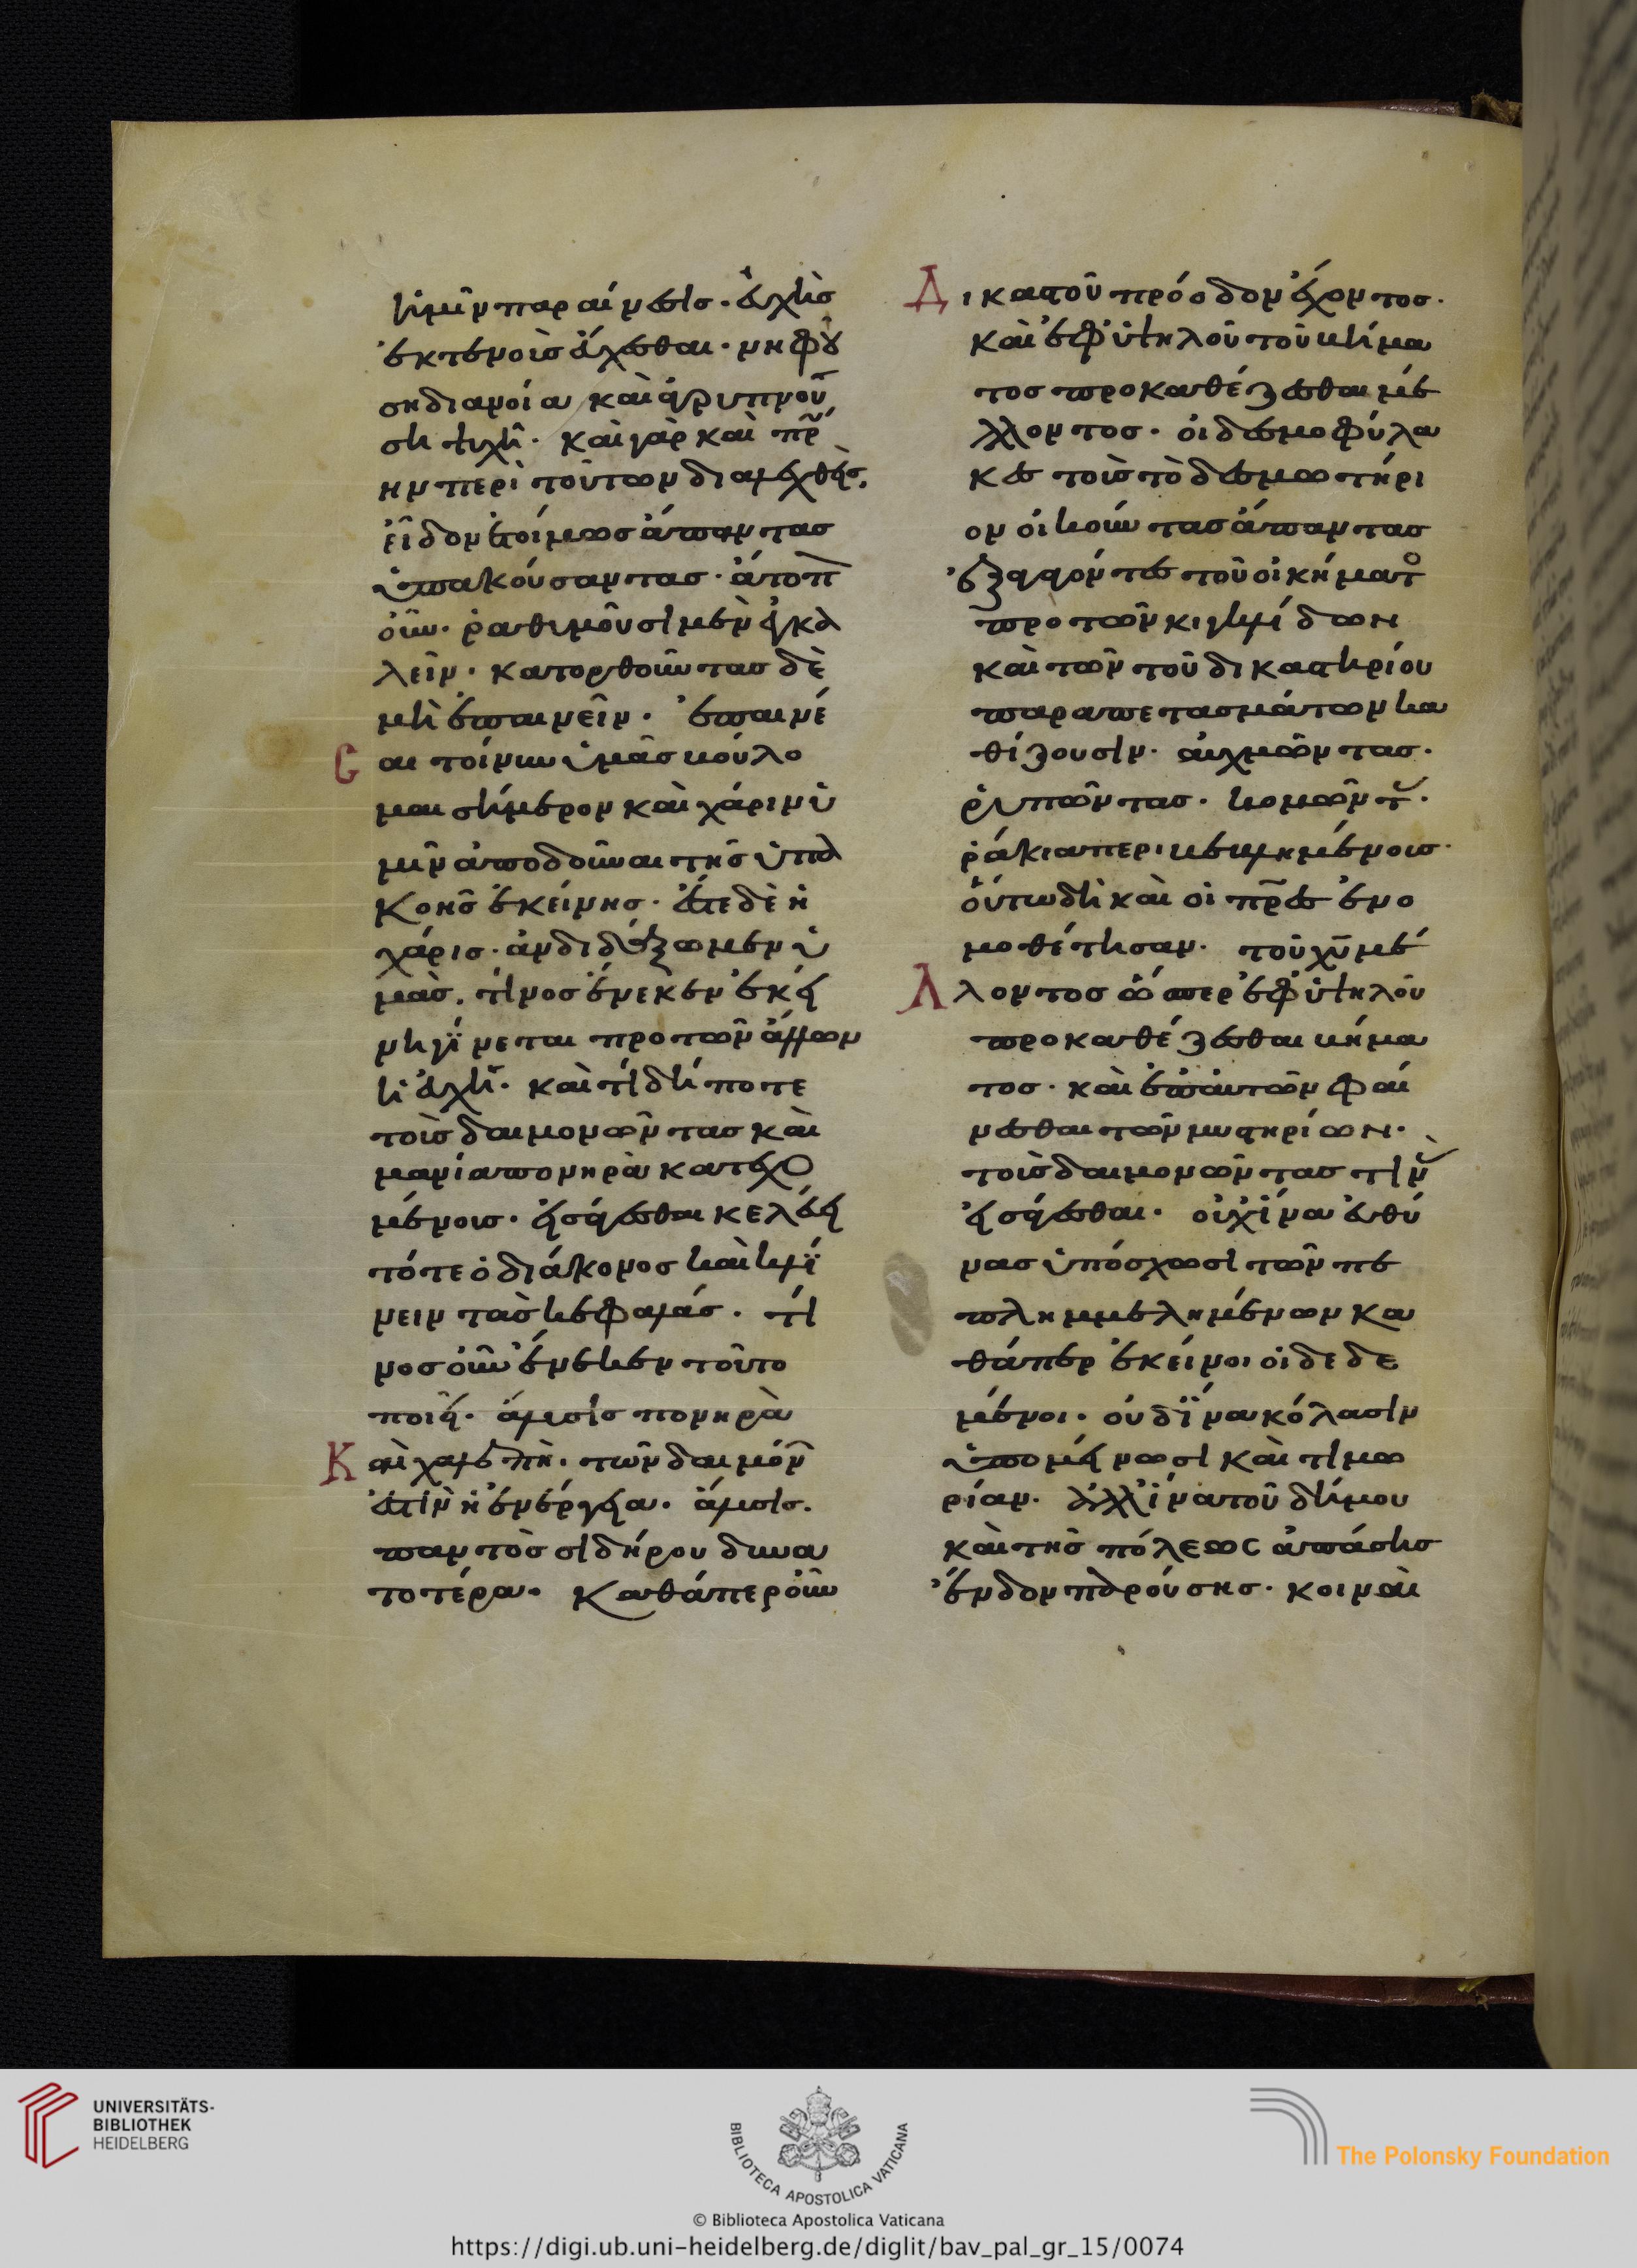 ἡμῖν παραίνεσις· εὐχῆς
ἐκτενοῦς ἔχεσθαι· νηφού
σῃ διανοία καὶ ἀγρυπνού
σῃ ψυχῆ· καὶ γὰρ καὶ πρώ
ην περὶ τούτων διαλεχθεὶς,
εἶδον ἑτοίμως ἅπαντας
ὑπακούσαντας· ἄτοπον
οὖν· ραθυμοῦσι μὲν ἐγκα
λεῖν· κατορθοῦντας δὲ
μὴ ἐπαινεῖν· ἐπαινέ
σαι τοίνυν ὑμᾶς βούλο
μαι σήμερον καὶ χάριν ὑ
μῖν ἀποδοῦναι τῆς ὑπα
κοῆς ἐκείνης· ἔσται δὲ ἡ
χάρις· ἂν διδάξωμεν ὑ
μᾶς, τίνος ἕνεκεν ἐκεί
νη γίνεται προ τῶν ἄλλων
ἡ εὐχή· καὶ τί δήποτε
τοὺς δαιμονῶντας καὶ
μανία πονηρᾶ κατεχο
μένους· εἰσάγεσθαι κελεύει
τότε ὁ διάκονος καὶ κλί
νειν τὰς κεφαλάς· τί
νος οὖν ἕνεκεν τοῦτο
ποιεῖ· ἅλυσις πονηρὰ
Καὶ χαλεπὴ· τῶν δαιμόνων
ἐστὶν ἡ ἐνέργεια· ἅλυσις·
παντὸς σιδήρου δυνα
τοτέρα· Καθάπερ οὖν
Δικαστοῦ πρόοδον ἔχοντος·
καὶ ἐφ ὑψηλοῦ τοῦ βήμα
τος προκαθέζεσθαι μέ
λλοντος· οἱ δεσμοφύλα
κες τοὺς τὸ δεσμωτήρι
ον οἰκοῦντας ἅπαντας
ἐξαγαγόντες τοῦ οἰκήματος
προ τῶν κιγκλίδων
καὶ τῶν τοῦ δικαστηρίου
παραπετασμάτων κα
θίζουσιν· αὐχμῶντας·
ῥυπῶντας· κομῶντας·
ῥάκια περιβεβλημένους·
οὕτω δὴ καὶ οἱ πρες ἐνο
μοθέτησαν· τοῦ χυ μέ
Λλοντος ὥσπερ ἐφ ὑψηλοῦ
προκαθέζεσθαι βήμα
τος· καὶ ἐπ αὐτῶν φαί
νεσθαι τῶν μυστηρίων·
τοὺς δαιμονῶντας τὴν
εἰσάγεσθαι· οὐχ ἵνα εὐθύ
νας ὑπόσχωσι τῶν πε
πλημμελημένων κα
θάπερ ἐκείνοι οἱ δεδε
μένοι· οὐδ ἵνα κόλασιν
ὑπομείνωσι καὶ τιμω
ρίαν· ἀλλ ἵνα τοῦ δήμου
καὶ τῆς πόλεως ἁπάσης
ἔνδον παρούσης· κοιναὶ
UNIVERSITÄTS-
BIBLIOTHEK
HEIDELBERG
BIBLIOTECA APOSTOLICA VATICANA
The Polonsky Foundation
© Biblioteca Apostolica Vaticana
https://digi.ub.uni-heidelberg.de/diglit/bav_pal_gr_15/0074